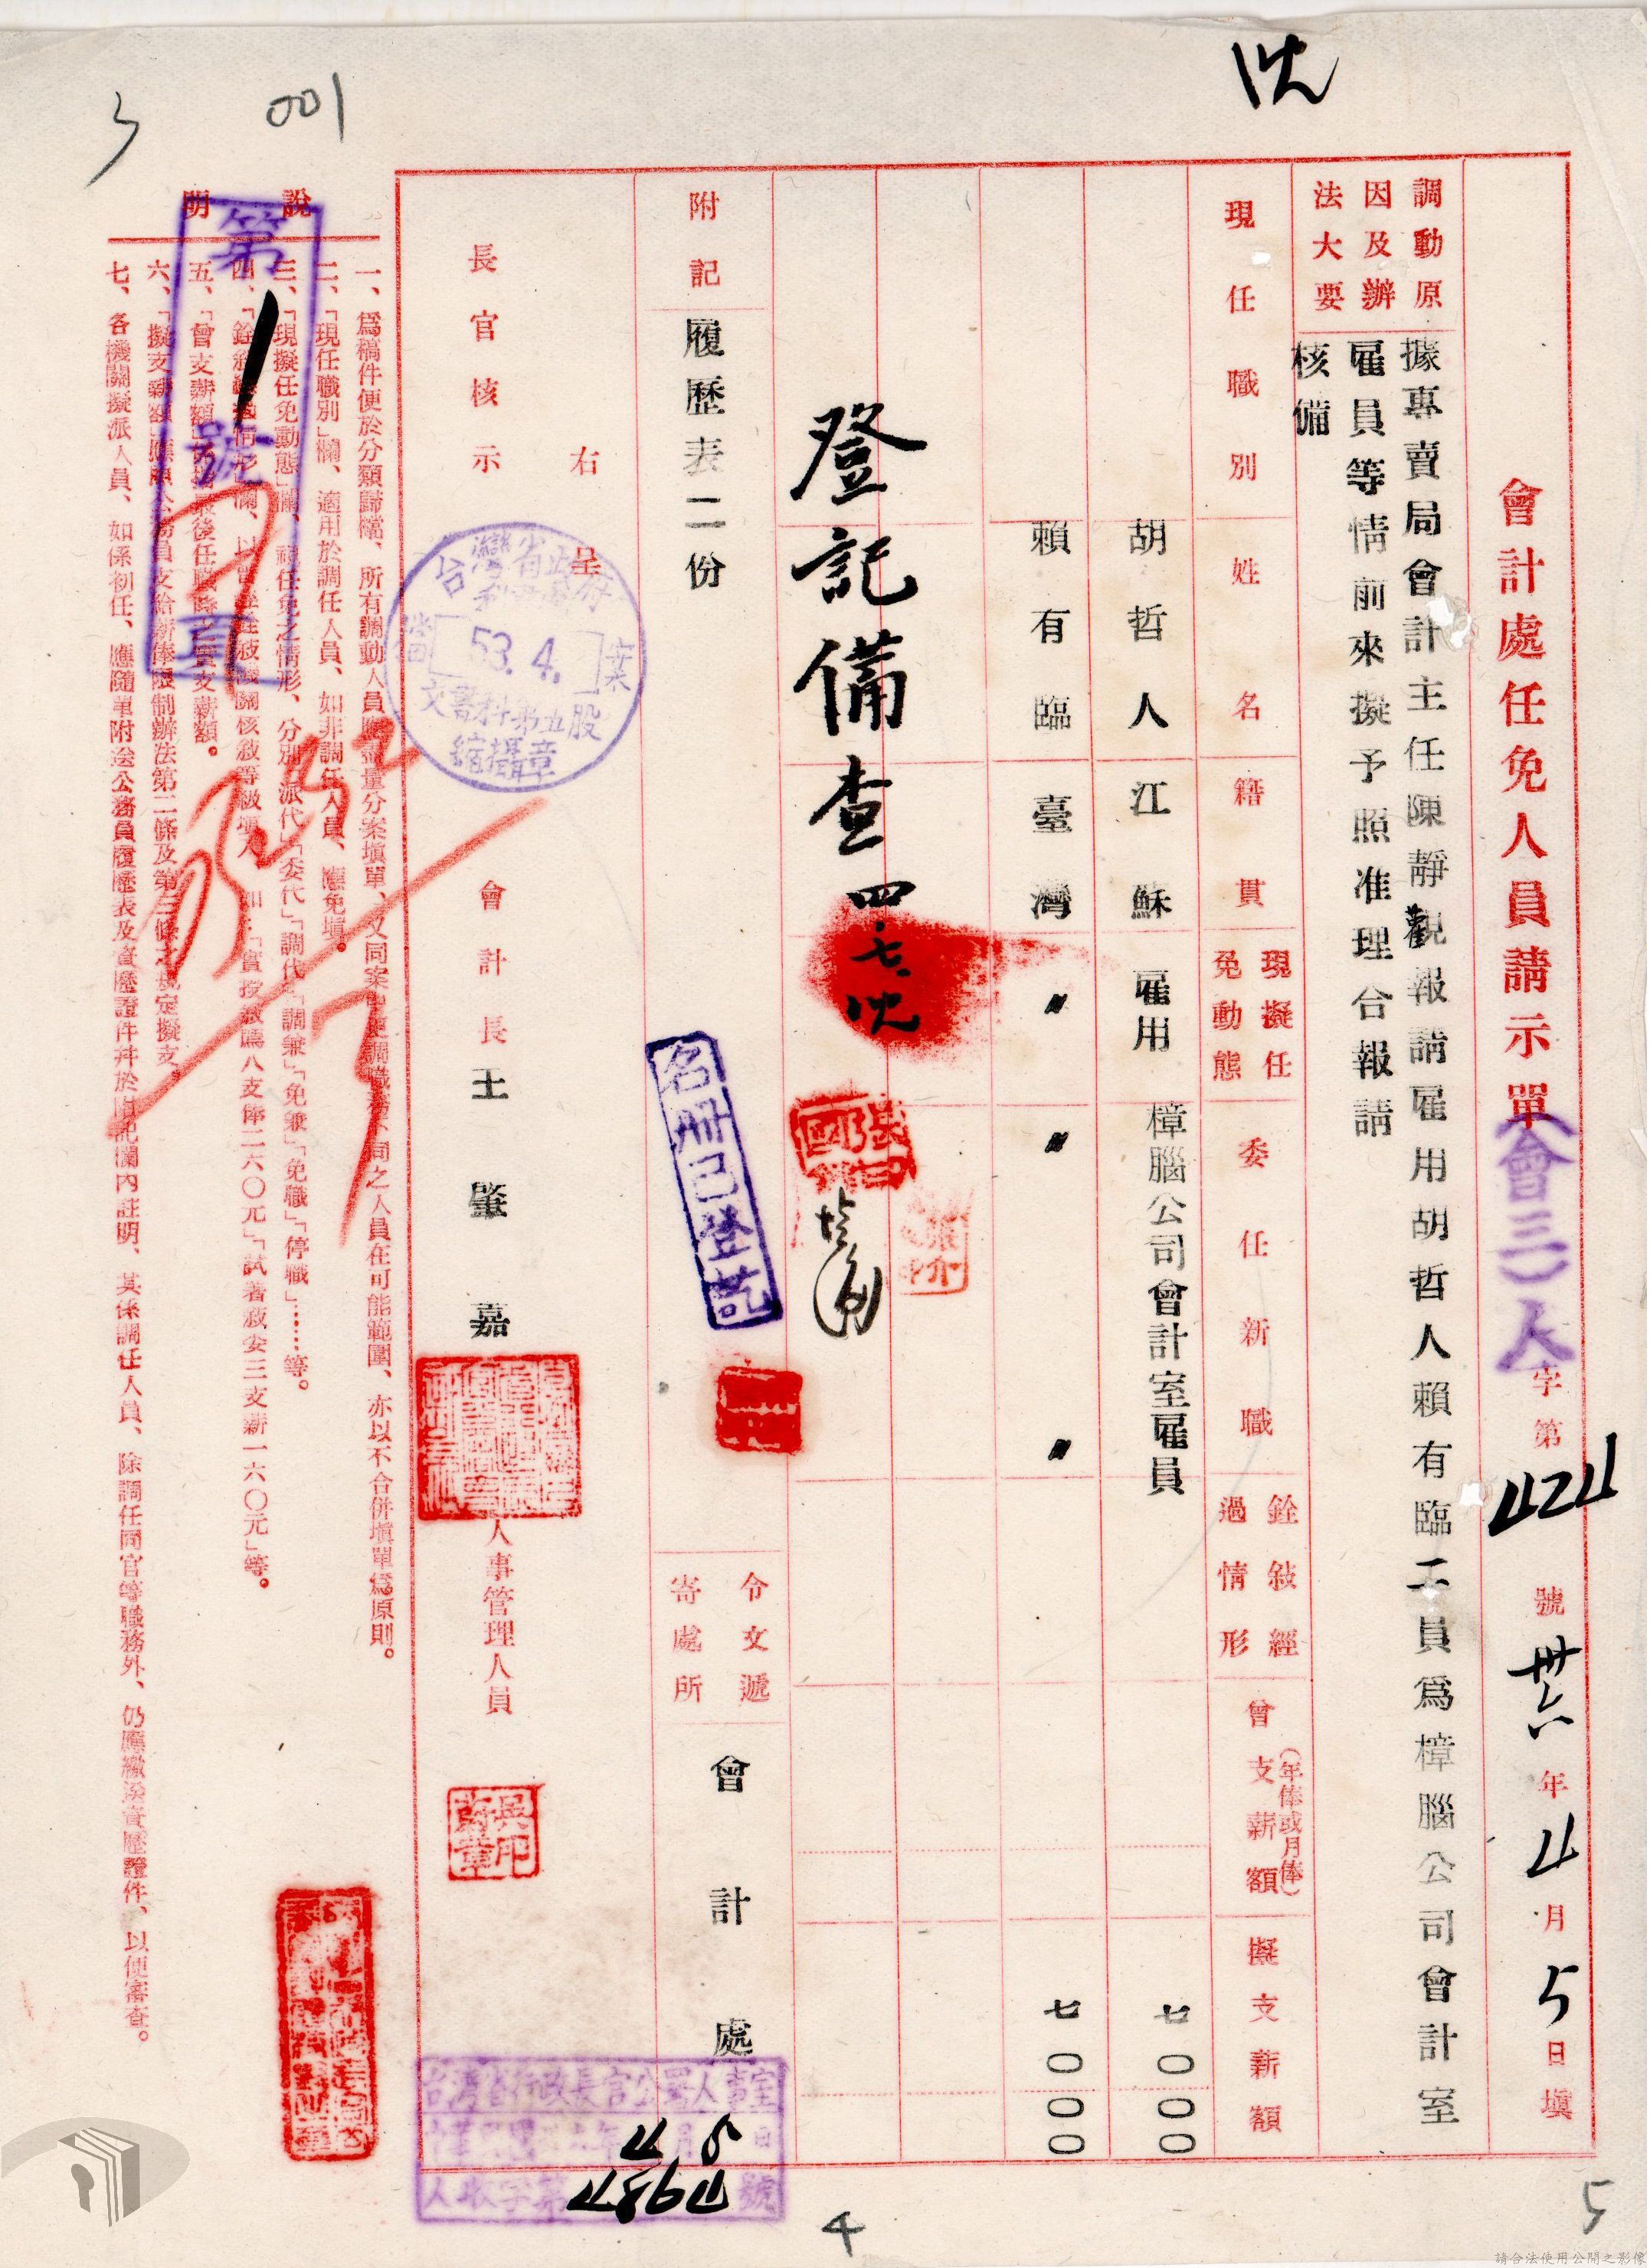 沈
001
會計處任免人員請示單(會三)人字第424號 卅六年4月5日填
調動原因及辦法大要
據專賣局會計主任陳靜觀報請雇用胡哲人賴有臨二員為樟腦公司會計室
雇員等情前來擬予照准理合報請
核備
現任職別
姓名
籍貫
現擬任免動態
委任新職
銓敍經過情形
曾支薪額(年俸或月俸)
擬支薪額
胡哲人 江蘇 雇用 樟腦公司會計室雇員 七〇〇〇
賴有臨 臺灣 〃 〃 〃 七〇〇〇
登記備查 四.七.沈
附記
履歷表二份
名册已登記
令文遞寄處所
會計處
右呈
長官核示
會計長王肇嘉
人事管理人員
台灣省行政長官公署人事室
人收字第4864號
台灣省政府
檔案
53.4.
文書科第五股
縮攝章
說明
一、爲稿件便於分類歸檔、所有調動人員應儘量分案塡單、又同案中更調職務不同之人員在可能範圍、亦以不合併塡單爲原則。
二、「現任職別」欄、適用於調任人員、如非調任人員、應免塡。
三、「現擬任免動態」欄、視任免之情形、分別「派代」「委代」「調代」「調兼」「免兼」「免職」「停職」……等。
五、「曾支薪額」
最後任職時之實支薪額。
六、「擬支薪額」應照公務員支給薪俸限制辦法第二條及第三條之規定擬支。
七、各機關擬派人員、如係初任、應隨單附送公務員履歷表及資歷證件幷於附記欄內註明、其係調任人員、除調任同官等職務外、仍應繳送資歷證件、以便審查。
第1號1頁
4
5
請合法使用公開之影像